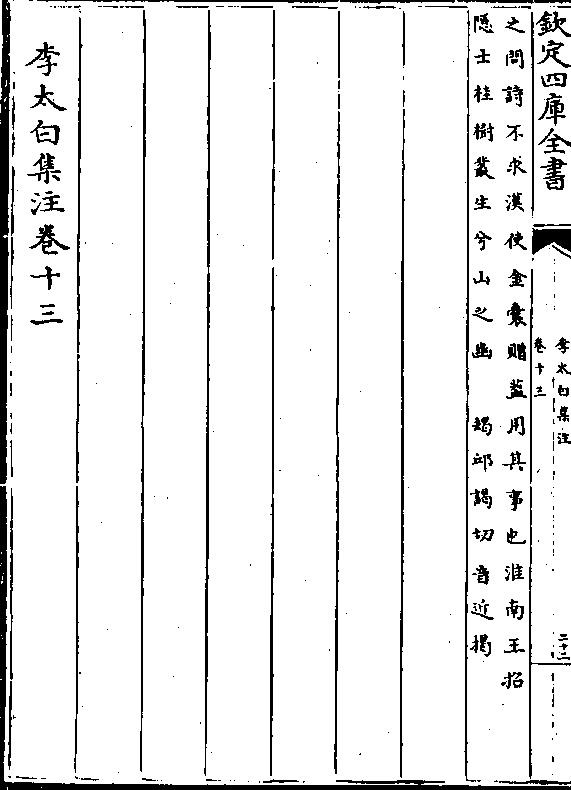 欽定四庫全書
李太白集注
卷十三
二十二
之問詩不求漢使金囊贈葢用其事也淮南王招
隠士桂樹叢生兮山之幽　朅邱謁切音近揭
李太白集注卷十三